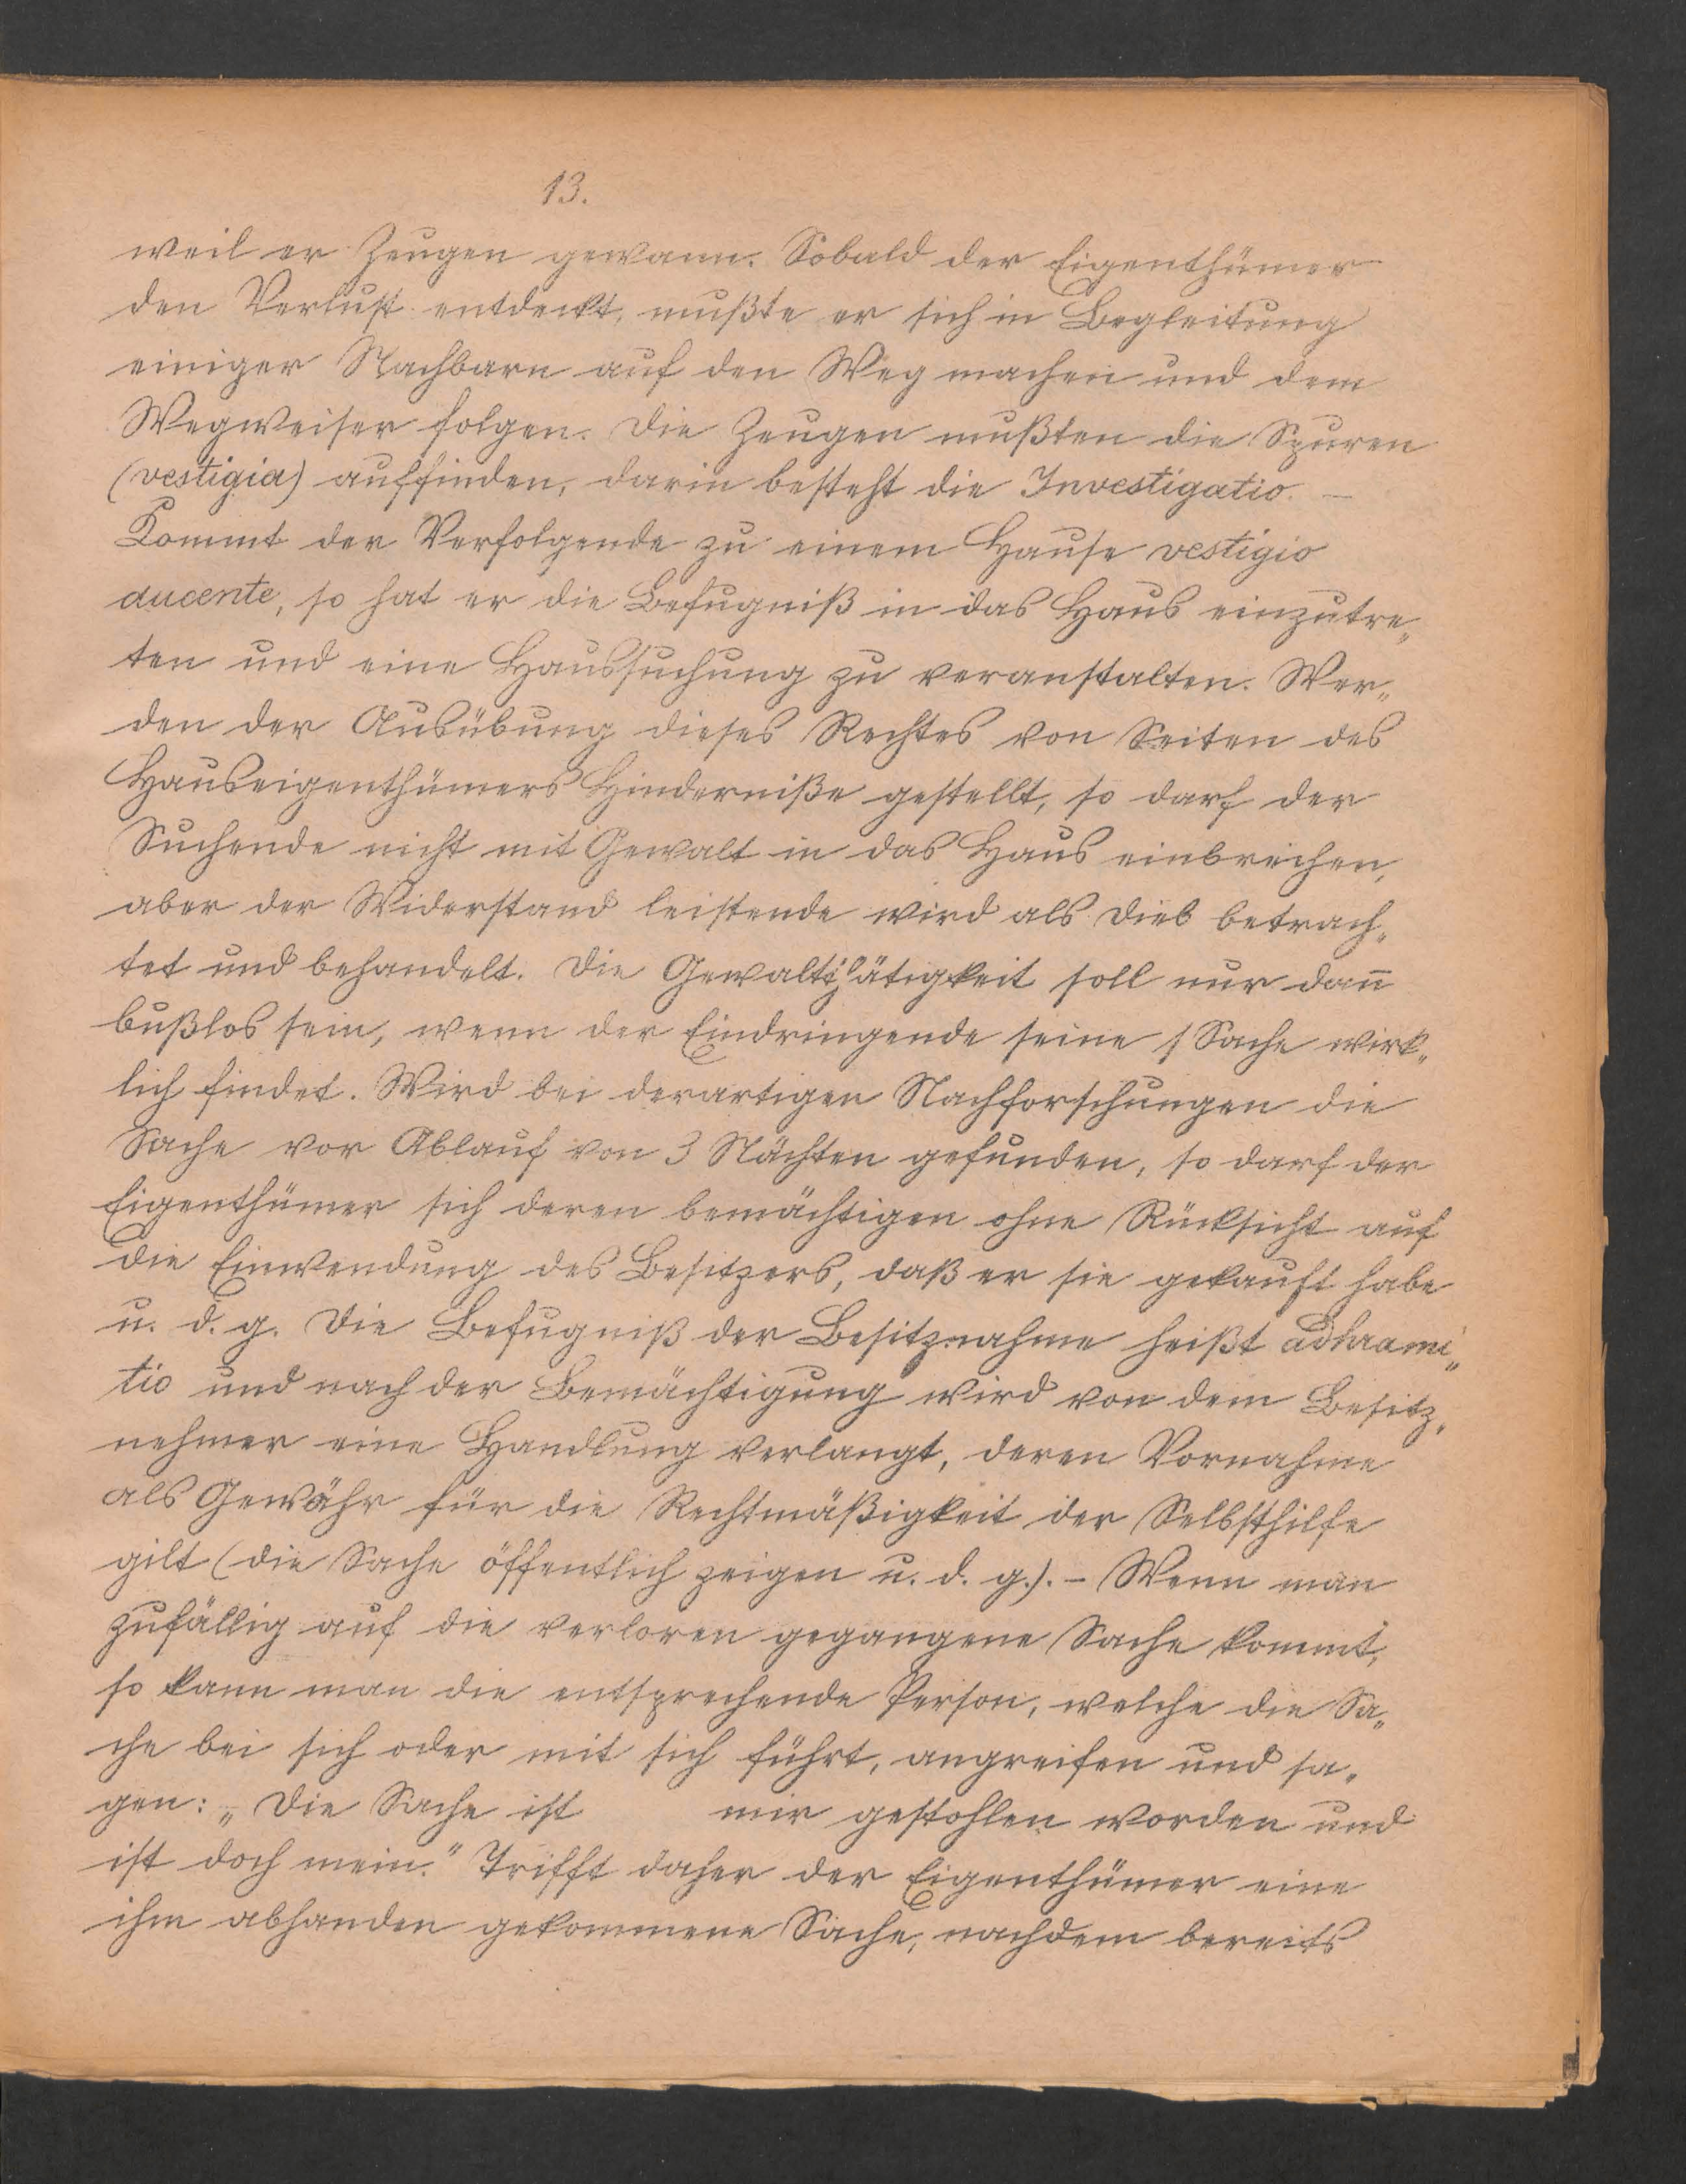 13.
weil er Zeugen gewann. Sobald der Eigenthümer
den Verlust entdeckt, mußte er sich in Begleitung
einiger Nachbarn auf den Weg machen und dem
Wegweiser folgen. Die Zeugen mußten die Spuren
(vestigia) auffinden, darin besteht die Investigatio. –
Kommt der Verfolgende zu einem Hause vestigio
ducente, so hat er die Befugniß in das Haus einzutre„
ten und eine Haussuchung zu veranstalten. Wer„
den der Ausübung dieses Rechtes von Seiten des
Hauseigenthümers Hinderniße gestellt, so darf der
Suchende nicht mit Gewalt in das Haus einbrechen,
aber der Widerstand leistende wird als Dieb betrach„
tet und behandelt. Die Gewaltthätigkeit soll nur dan̄
bußlos sein, wenn der Eindringende seine Sache wirk„
lich findet. Wird bei derartigen Nachforschungen die
Sache vor Ablauf von 3 Nächten gefunden, so darf der
Eigenthümer sich deren bemächtigen ohne Rücksicht auf
die Einwendung des Besitzers, daß er sie gekauft habe
u. d. g. Die Befugniß der Besitznahme heißt adhrami„
tio und nach der Bemächtigung wird von dem Besitz„
nehmer eine Handlung verlangt, deren Vornahme
als Gewähr für die Rechtmäßigkeit der Selbsthilfe
gilt (die Sache öffentlich zeigen u. d. g.). – Wenn man
zufällig auf die verloren gegangene Sache kommt,
so kann man die entsprechende Person, welche die Sa„
che bei sich oder mit sich führt, angreifen und sa„
gen: „Die Sache ist mir gestohlen worden und
ist doch mein." Trifft daher der Eigenthümer eine
ihm abhanden gekommene Sache, nachdem bereits